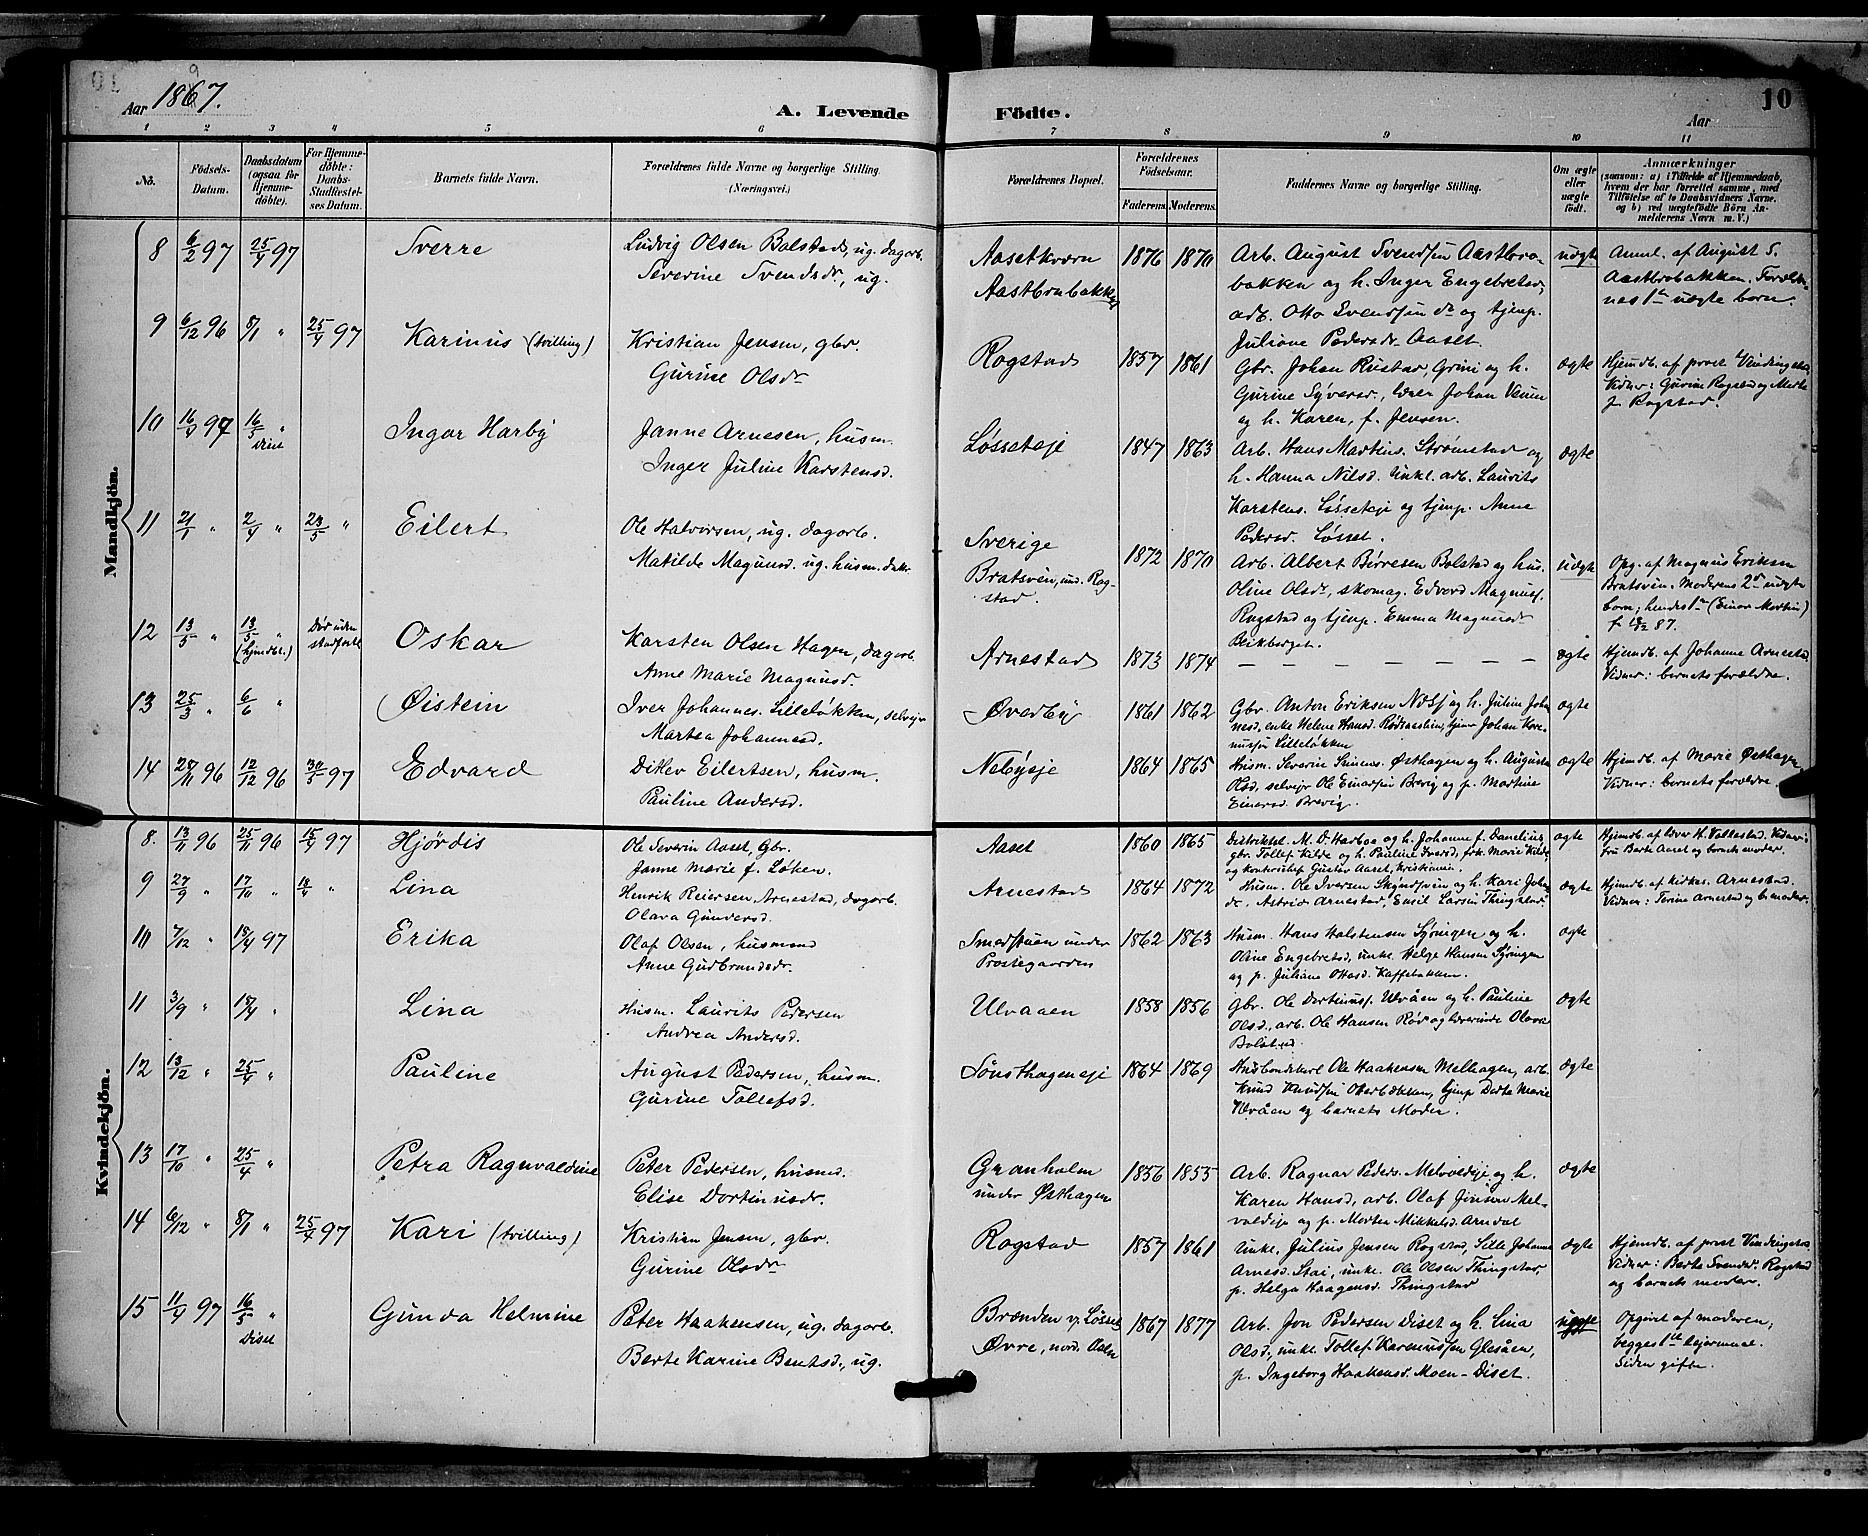 Aar 1867.
9
A. Levende Födte.
Aar
10
1 2 3 4 5 6 7 8 9 10 11
No.
Födsels-Datum.
Daabsdatum (ogsaa for Hjemmedöbte).
For Hjemmedöbte: Daabs-Stadfæstelses Datum.
Barnets fulde Navn.
Forældrenes fulde Navne og borgerlige Stilling.
(Næringsvei.)
Forældrenes Bopæl.
Forældrenes Födselsaar.
Faderens. Moderens.
Faddernes Navne og borgerlige Stilling.
Om ægte eller uægte födt.
Anmærkninger
(saasom: a) i Tilfælde af Hjemmedaab, hvem der har forrettet samme, med Tilföielse af to Daabsvidners Navne, og b) ved uægtefödte Börn Anmelderens Navn m. V.)
Mandkjön.
8 6/2 97 25/4 97 Sverre
Ludvig Olsen Bolstad, ug. dagarb.
Severine Svendsdr., ug.
Aasetkværn
Aastbrubakken
1876 1870
Arb. August Svendsen Aastbro-
bakken og h. Inger Engebretsd,
arb. Otto Svendsen do og tjenp.
Juliane Pedersdr. Aaset.
uægte
Anml. af August S.
Aastbrobakken. Foræld-
nes 1te uægte barn.
9 6/12 96 8/1 " 25/4 97 Karinus (tvilling)
Kristian Jensen, gbr.
Gurine Olsdr
Rogstad
1857 1861
Gbr. Johan Rustad, Grini og h.
Gurine Syversd., Lærer Johan
og h. Karen, f. Jensen.
ægte
Hjemdb. af prest Vindingstad.
Vidner: Gurine Rogstad og Marthe
Rogstad.
10 16/4 97 16/5 " Diset Ingar Harby
Janne Arnesen, husm.
Inger Juline Karstensd.
Løsseteje
1847 1863
Arb. Hans Martins. Strømstad og
h. Hanna Nilsd. Unkl. arb. Laurits
Karstens. Løsseteje og tjenp. Anne
Pedersd. Løsset.
ægte
11 21/1 " 2/4 " 23/5 " Eilert
Ole Halvorsen, ug. dagarb.
Matilde Magnusd. ug. husm. datr.
Sverige
Bratsven, und. Rog-
stad.
1872 1870
Arb. Albert Børresen Bolstad og hus.
Oline Olsdr, skomag. Edvard Magnuss.
Rogstad og tjenp. Emma Magnusdr
Blikberget.
uægte
Opg. af Magnus Eriksen
Bratsven. Moderens 2det uægte
barn; hendes 1te (Einar Martin)
f. 87.
12 13/5 " 13/5 " (hjemdbt.) Død uden stadfæst. Oskar
Karsten Olsen Hagen, dagarb.
Anne Marie Magnusd.
Arnestad
1873 1874
— — — — — — —
ægte
Hjemdb. af Johanne Arnestad.
Vidner: barnets forældre.
13 25/3 " 6/6 " Øistein
Iver Johannes. Lilleløkken, selvejer
Martea Johannesd.
Øverby
1861 1862
Gbr. Anton Eriksen Næss og h. Juline Johan-
nesd, enke Helene Hansd. Rødsæteien, tjener Johan Kare-
nussen Lilleløkken
ægte
14 28/11 96 12/12 96 30/5 97 Edvard
Ditlev Eilertsen, husm.
Pauline Andersd.
Nebyeje
1864 1865
Husm. Severin Simens. Østhagen og h. Augusta
Olsd, selvejer Ole Einarsen Brevig og p. Martine
Einarsd. Brevig.
ægte
Hjemdb. af Marie Østhagen.
Vidner: barnets forældre.
Kvindekjön.
8. 13/11 96 25/11 96 15/4 97 Hjørdis
Ole Severin Aaset, Gbr.
Janne Marie f. Løken.
Aaset
1860 1865
Distriktsl. M. D. Harboe og h. Johanne f. Danelius
gbr. Tollef Kilde og h. Pauline Iversd, frk. Marie Kilde
og kontorchef Gustav Aaset, Kristiania.
ægte
Hjemdb. af lærer H. Vallestad. Vidner:
fru Berte Aaset og barnets moder.
9 27/9 " 17/10 " 18/4 " Lina
Henrik Reiersen Arnestad, dagarb.
Olava Gundersd.
Arnestad
1864 1872
Husm. Ole Iversen Skyndsven og h. Kari Johan
dr, Astrid Arnestad, Ensil Larsen Thingstad.
ægte
Hjemdb. af kirkes. Arnestad.
Vidner: Terine Arnestad og b. moder.
10 7/12 " 18/4 97 Erika
Olaf Olsen, husmand
Anne Gudbrandsdr.
Smedstuen under
Prestegaarden
1862 1863
Husm. Hans Halstensen Syringen og h.
Oline Engebretsd, unkl. Helge Hansen Syringen
og p. Juliane Ottosd. Kaffebakken.
ægte
11 3/9 " 18/4 " Lina
Husm. Laurits Pedersen
Andrea Andersd.
Ulvaaen
1858 1856
gbr. Ole Dortinuss. Ulvåen og h. Pauline
Olsd., arb. Ole Hansen Rød og lærerinde Olava
Bolstad.
ægte
12 13/12 " 25/4 " Pauline
August Pedersen, husm.
Gurine Tollefsd.
Sønsthageneje
1864 1869
Husbondskarl Ole Haakensen Melhagen, arb.
Knud Knudsen Otterbækken, tjenp Dorte Marie
Ulvåen og barnets Moder.
ægte
13 17/10 " 25/4 " Petra Ragnvaldine
Peter Pedersen, husmd.
Elise Dortinusdr.
Granholm
under Østhagen
1856 1855
Arb. Ragnar Peders. Melvoldeje og h.
Karen Hansd, arb. Olaf Jensen Mel-
voldeje og p. Morten Mikkelsd. Arndal
ægte
14 6/12 " 8/1 " 25/4 97 Kari (tvilling)
Kristian Jensen, gbr.
Gurine Olsdr
Rogstad
1857 1861
Unkl. Julius Jensen Rogstad, Lille Johanne
Arnesd. Stai, unkl. Ole Olsen Thingstad,
p. Helga Haagensd. Thingstad
ægte
Hjemdb. af prest Vindingstad.
Vidner: Berte Svendsd. Rogstad
og barnets moder.
15 11/4 97 16/5 " Diset Gunda Helmine
Peter Haakensen, ug. dagarb.
Berte Karine Berntsd., ug.
Brænden v. Løsset
Øvre, nord. Osen
1867 1877
Arb. Jon Pedersen Diset og h. Lina
Olsd., unkl. Tollef Karenussen Glesåen,
p. Ingeborg Haakensd. Moen - Diset.
uægte
Opgivet af moderen;
begges 1te lejermaal.
Siden gifte.